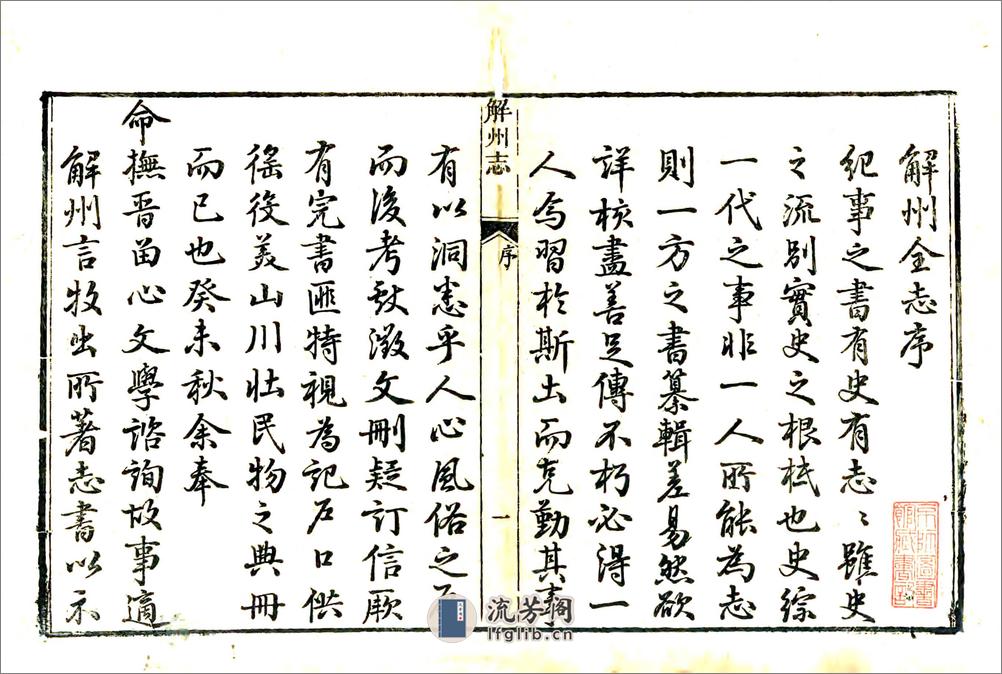 解州全志序
紀事之書有史有志〻雖史
之流別實史之根柢也史綜
一代之事非一人所能為志
則一方之書纂輯差易然欲
詳核盡善足傳不朽必得一
人焉習於斯土而克勤其事
解州志
序
一
有以洞悉乎人心風俗之
而後考獻徵文刪疑訂信厥
有完書匪特視為記戶口供
徭役美山川壯民物之典冊
而已也癸未秋余奉
命撫晉留心文學諮詢故事適
解州言牧出所著志書以示
流芳阁
lfglib.cn